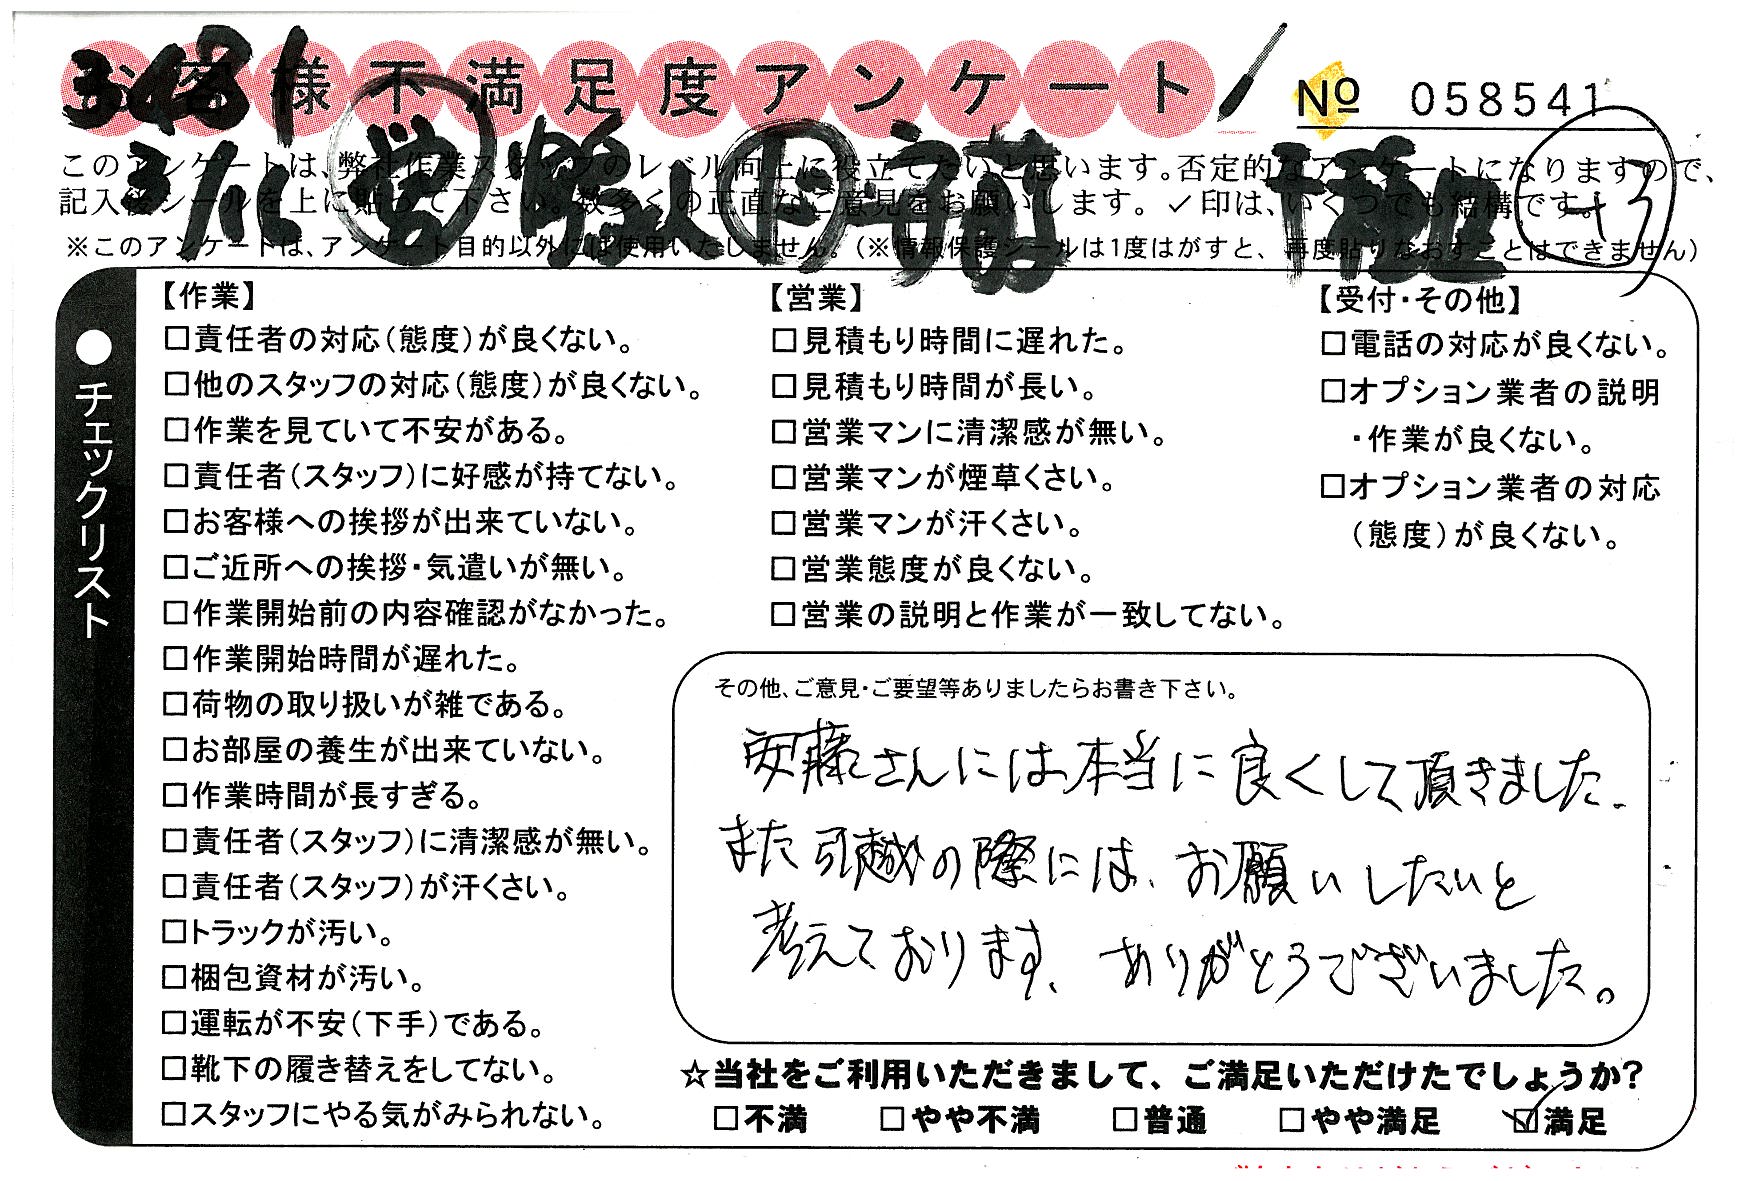 お客様不満足度アンケート
№ 058541
3481
3/16 営 勝又 ト 守前 千種 +3
このアンケートは、弊社作業スタッフのレベル向上に役立てたいと思います。否定的なアンケートになりますので、
記入後シールを上に貼って下さい。数多くの正直なご意見をお願いします。✓印は、いくつでも結構です。
※このアンケートは、アンケート目的以外には使用いたしません。(※情報保護シールは1度はがすと、再度貼りなおすことはできません)
●チェックリスト
【作業】
□責任者の対応(態度)が良くない。
□他のスタッフの対応(態度)が良くない。
□作業を見ていて不安がある。
□責任者(スタッフ)に好感が持てない。
□お客様への挨拶が出来ていない。
□ご近所への挨拶・気遣いが無い。
□作業開始前の内容確認がなかった。
□作業開始時間が遅れた。
□荷物の取り扱いが雑である。
□お部屋の養生が出来ていない。
□作業時間が長すぎる。
□責任者(スタッフ)に清潔感が無い。
□責任者(スタッフ)が汗くさい。
□トラックが汚い。
□梱包資材が汚い。
□運転が不安(下手)である。
□靴下の履き替えをしてない。
□スタッフにやる気がみられない。
【営業】
□見積もり時間に遅れた。
□見積もり時間が長い。
□営業マンに清潔感が無い。
□営業マンが煙草くさい。
□営業マンが汗くさい。
□営業態度が良くない。
□営業の説明と作業が一致してない。
【受付・その他】
□電話の対応が良くない。
□オプション業者の説明
・作業が良くない。
□オプション業者の対応
(態度)が良くない。
その他、ご意見・ご要望等ありましたらお書き下さい。
安藤さんには本当に良くして頂きました。
また引越の際には、お願いしたいと
考えております、ありがとうございました。
☆当社をご利用いただきまして、ご満足いただけたでしょうか?
□不満 □やや不満 □普通 □やや満足 ☑満足